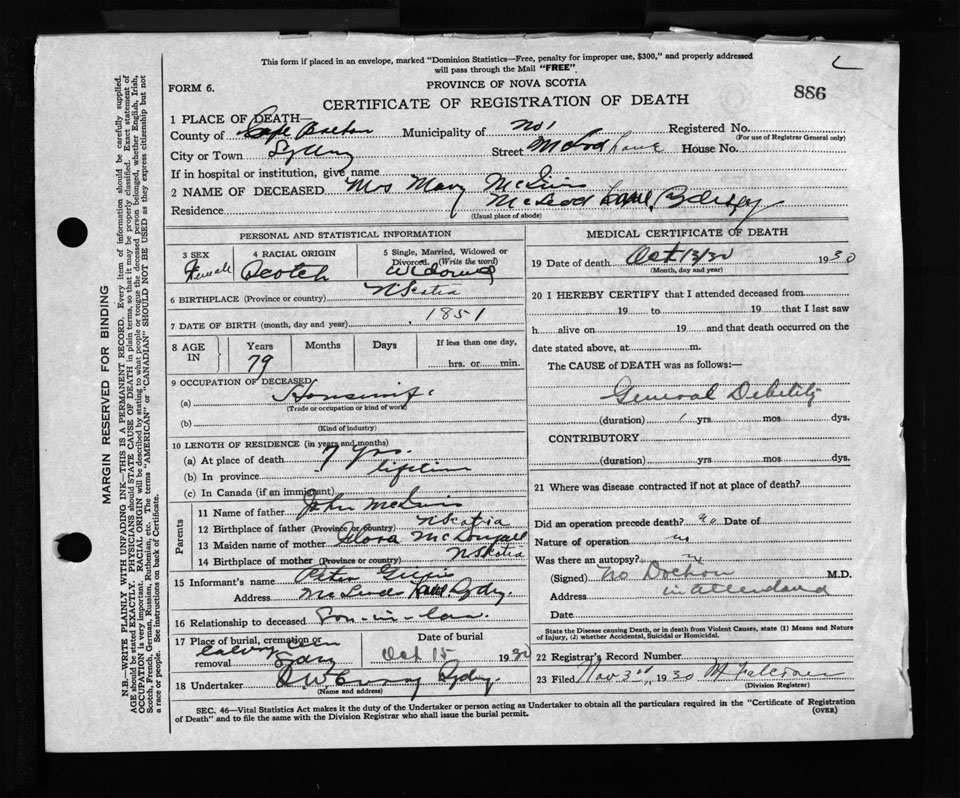 This form if placed in an envelope, marked "Dominion Statistics—Free, penalty for improper use, $300," and properly addressed
will pass through the Mail "FREE".
FORM 6.
PROVINCE OF NOVA SCOTIA
886
CERTIFICATE OF REGISTRATION OF DEATH
1 PLACE OF DEATH—
County of Cape Breton Municipality of No 1 Registered No.
(For use of Registrar General only)
City or Town Sydney Street McLeod Lane House No.
If in hospital or institution, give name
2 NAME OF DECEASED Mrs Mary
Residence McLeod Lane, Sydney
(Usual place of abode)
PERSONAL AND STATISTICAL INFORMATION
3 SEX Female
4 RACIAL ORIGIN Scotch
5 Single, Married, Widowed or Divorced. (Write the word) Widowed
6 BIRTHPLACE (Province or country) N Scotia
7 DATE OF BIRTH (month, day and year) 1851
8 AGE IN Years 79 Months Days If less than one day, hrs. or min.
9 OCCUPATION OF DECEASED
(a) Housewife
(Trade or occupation or kind of work)
(b)
(Kind of industry)
10 LENGTH OF RESIDENCE (in years and months)
(a) At place of death 7 yrs.
(b) In province lifetime
(c) In Canada (if an immigrant)
Parents
11 Name of father John
12 Birthplace of father (Province or country) N Scotia
13 Maiden name of mother Flora McDougall
14 Birthplace of mother (Province or country) N Scotia
15 Informant's name Peter Gillis
Address Lane Sydney.
16 Relationship to deceased Son-in-law.
17 Place of burial, cremation or removal Calvary Cem Sydney
Date of burial Oct 15 1930
18 Undertaker Sydney.
(Name and address)
MEDICAL CERTIFICATE OF DEATH
19 Date of death Oct 13/30 1930
(Month, day and year)
20 I HEREBY CERTIFY that I attended deceased from
19 to 19 that I last saw
h alive on 19 and that death occurred on the
date stated above, at m.
The CAUSE of DEATH was as follows:—
General Debility
(duration) 1 yrs mos dys.
CONTRIBUTORY
(duration) yrs mos dys.
21 Where was disease contracted if not at place of death?
Did an operation precede death? no Date of
Nature of operation no
Was there an autopsy? no
(Signed) No Doctor M.D.
Address in attendance
Date
State the Disease causing Death, or in death from Violent Causes, state (1) Means and Nature
of Injury, (2) whether Accidental, Suicidal or Homicidal.
22 Registrar's Record Number
23 Filed Nov 3rd, 1930
(Division Registrar)
SEC. 46—Vital Statistics Act makes it the duty of the Undertaker or person acting as Undertaker to obtain all the particulars required in the "Certificate of Registration
of Death" and to file the same with the Division Registrar who shall issue the burial permit.
(OVER)
MARGIN RESERVED FOR BINDING
N.B.—WRITE PLAINLY WITH UNFADING INK—THIS IS A PERMANENT RECORD. Every item of information should be carefully supplied.
AGE should be stated EXACTLY. PHYSICIANS should STATE CAUSE OF DEATH in plain terms, so that it may be properly classified. Exact statement of
OCCUPATION is very important. RACIAL ORIGIN will be described by stating to what people or tongue the deceased person belonged, whether English, Irish,
Scotch, French, German, Russian, Ruthenian, etc. The terms "AMERICAN" or "CANADIAN" SHOULD NOT BE USED as they express citizenship but not
a race or people. See instructions on back of Certificate.